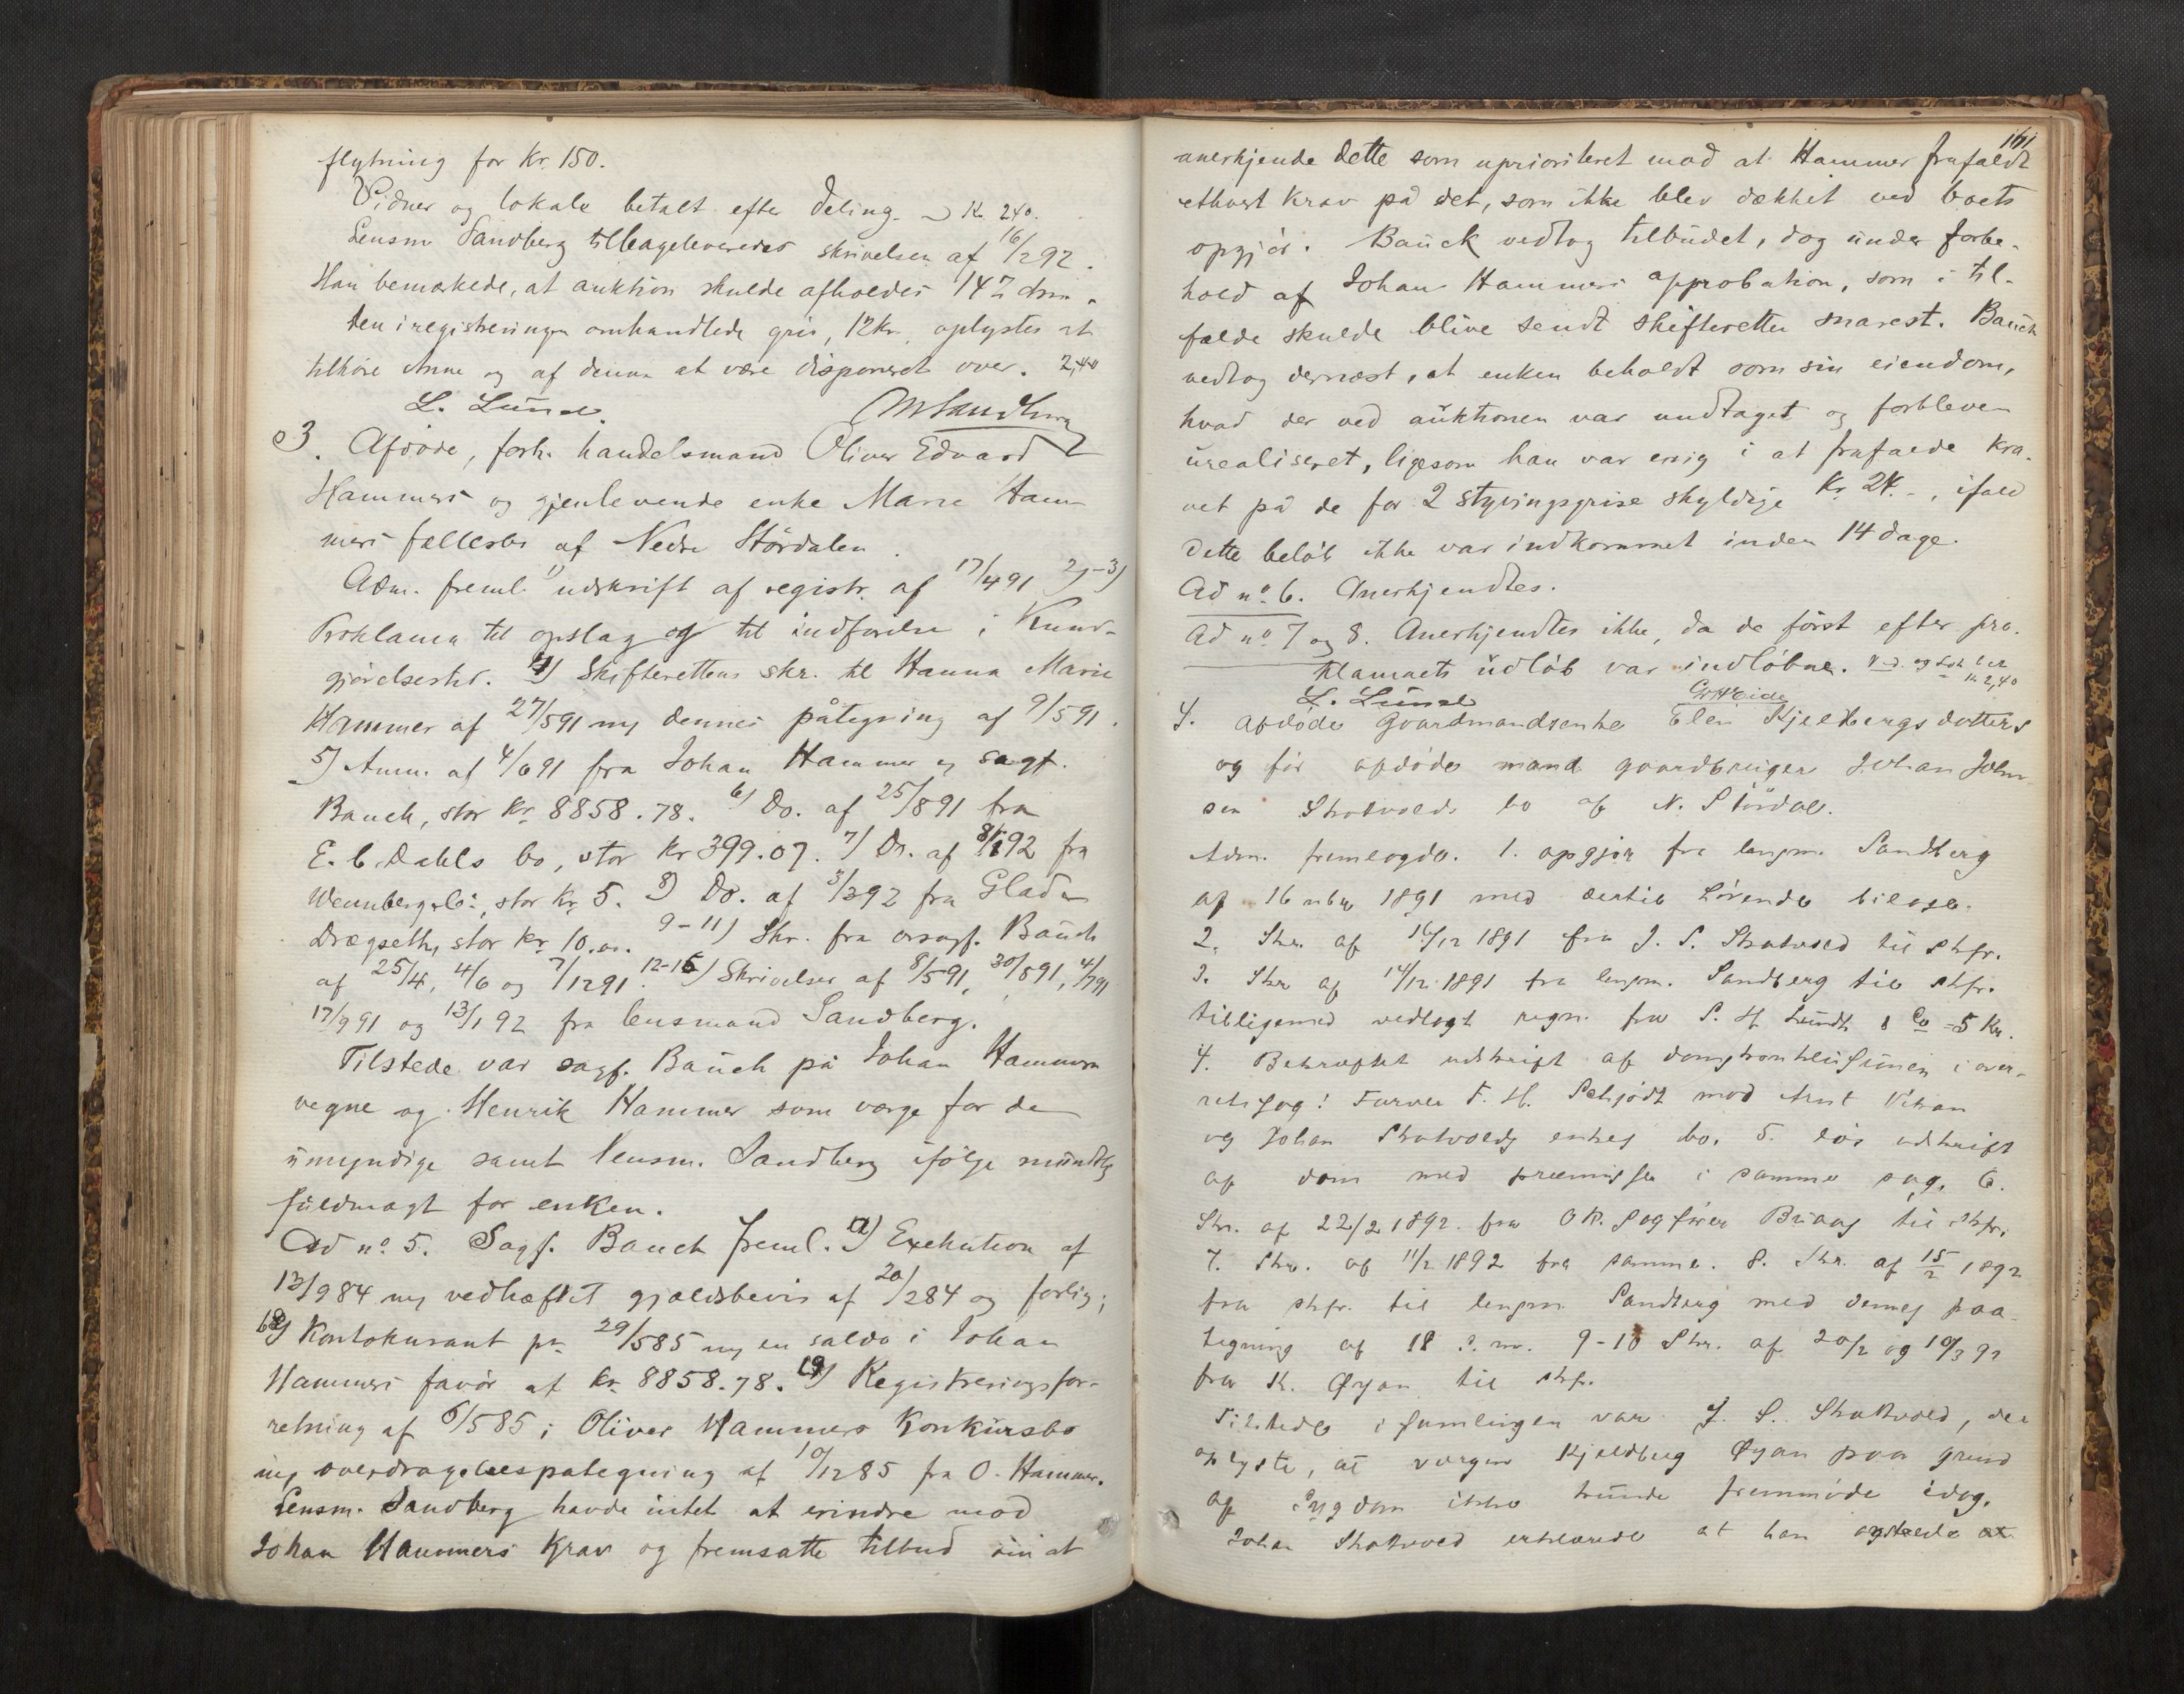 flytning for Kr. 150.
Vidner og lokale betalt efter deling. Kr. 240.
Lensm Sandberg tilbageleveredes skrivelsen af 16/292.
Han bemærkede, at auktion skulde afholdes 14 dm.
Den i registreringen omhandlede gris, 12 kr. oplystes at
tilhøre Anne og af denne at være disponeret over. 2,40
L. Lund. MSandberg
3. Afdøde, forh. handelsmand Oliver Edvard
Hammers og gjenlevende enke Marie Ham-
mers fællesbo af Nedre Størdalen.
Adm. freml. 1) udskrift af registr. af 17/491 2)-3)
Proklama til opslag og til indførelse i Kund-
gjørelsestid. 4) Skifterettens skr. til Hanna Marie
Hammer af 27/591 m/ dennes påtegning af 9/591.
5) Anm. af 4/691 fra Johan Hammer v/ sagf.
Bauck, stor Kr. 8858.78. 6) Do. af 25/891 fra
E. C. Dahls bo, stor Kr 399.07. 7) Do. af 8/192 fra
Wennberg & Co., stor Kr. 5. 8) Do. af 3/392 fra Glad
Drægseth, stor Kr. 10.00. 9-11) Skr. fra orsagf. Bauck
af 25/4, 4/6 og 7/1291. 12-16) Skrivelser af 8/591, 30/591, 4/791
17/991 og 13/192 fra lensmand Sandberg.
Tilstede var sagf. Bauck på Johan Hammers
vegne og Henrik Hammer som værge for de
umyndige samt lensm. Sandberg ifølge mundtlg
fuldmagt for enken.
Ad no. 5. Sagf. Bauck freml. 17) Exekution af
13/984 m/ vedhæftet gjældsbevis af 20/284 og forlig;
18) Kontokurant pr. 29/585 m/ en saldo i Johan
Hammers favør af kr. 8858.78. 19) Registreringsfor-
retning af 6/585 i Oliver Hammers Konkursbo
m/ overdragelsespategning af 10/1285 fra O. Hammer.
Lensm. Sandberg havde intet at erindre mod
Johan Hammers krav og fremsatte tilbud om at
161
anerkjende dette som uprioriteret mod at Hammer frafaldt
ethvert krav på det, som ikke blev dækket ved boets
opgjør. Bauck vedtog tilbudet, dog under forbe-
hold af Johan Hammers approbation, som i til-
fælde skulde blive sendt skifteretten snarest. Bauck
vedtog dernæst, at enken beholdt som sin eiendom,
hvad der ved auktionen var undtaget og forbleven
urealiseret, ligesom han var enig i at frafalde kra-
vet på de for 2 styvingsgrise skyldige Kr 24.-, ifald
dette beløb ikke var indkommet inden 14 dage.
Ad no. 6. Anerkjendtes.
Ad no 7 og 8. Anerkjendtes ikke, da de først efter pro-
klamaets udløb var indløbne. Vid. og Lok. bet. Kr. 2,40
L. Lund
4. Afdøde Gaardmandsenke Elen Kjeldbergsdatters
og før afdøde mand gaardbruger Johan John
sen Skatvolds bo af N. Størdal.
Adm. fremlagde. 1. opgjør fra lensm. Sandberg
af 16 nbr 1891 med dertil hørende bilage.
2. Skr. af 16/12 1891 fra J. S. Skatvold til skfr.
3. Skr af 14/12 1891 fra lensm. Sandberg til skfr.
tilligemed vedlagt regn. fra S. H. Lundh & Co = 5 Kr.
4. Bekræftet udskrift af domskonklusionen i over-
retssag: Farver F. H. Schjødt mod Arnt Vikan
og Johan Skatvolds enkes bo. 5. løs udskrift
af dom med præmisser i samme sag. 6.
Skr. af 22/2 1892. fra OR. Sagfører Buaas til skfr.
7. Skr. af 11/2 1892 fra samme. 8. Skr. af 15/2 1892
fra skfr. til lensm. Sandberg med dennes paa-
tegning af 18 s. m. 9-10 Skr. af 20/2 og 10/3 92
fra K. Øyan til skfr.
Tilstede i samlingen var J. S. Skatvold, der
oplyste, at værgen Kjeldberg Øyan paa grund
af Sygdom ikke kunde fremmøde idag.
Johan Skatvold erklærede at han at